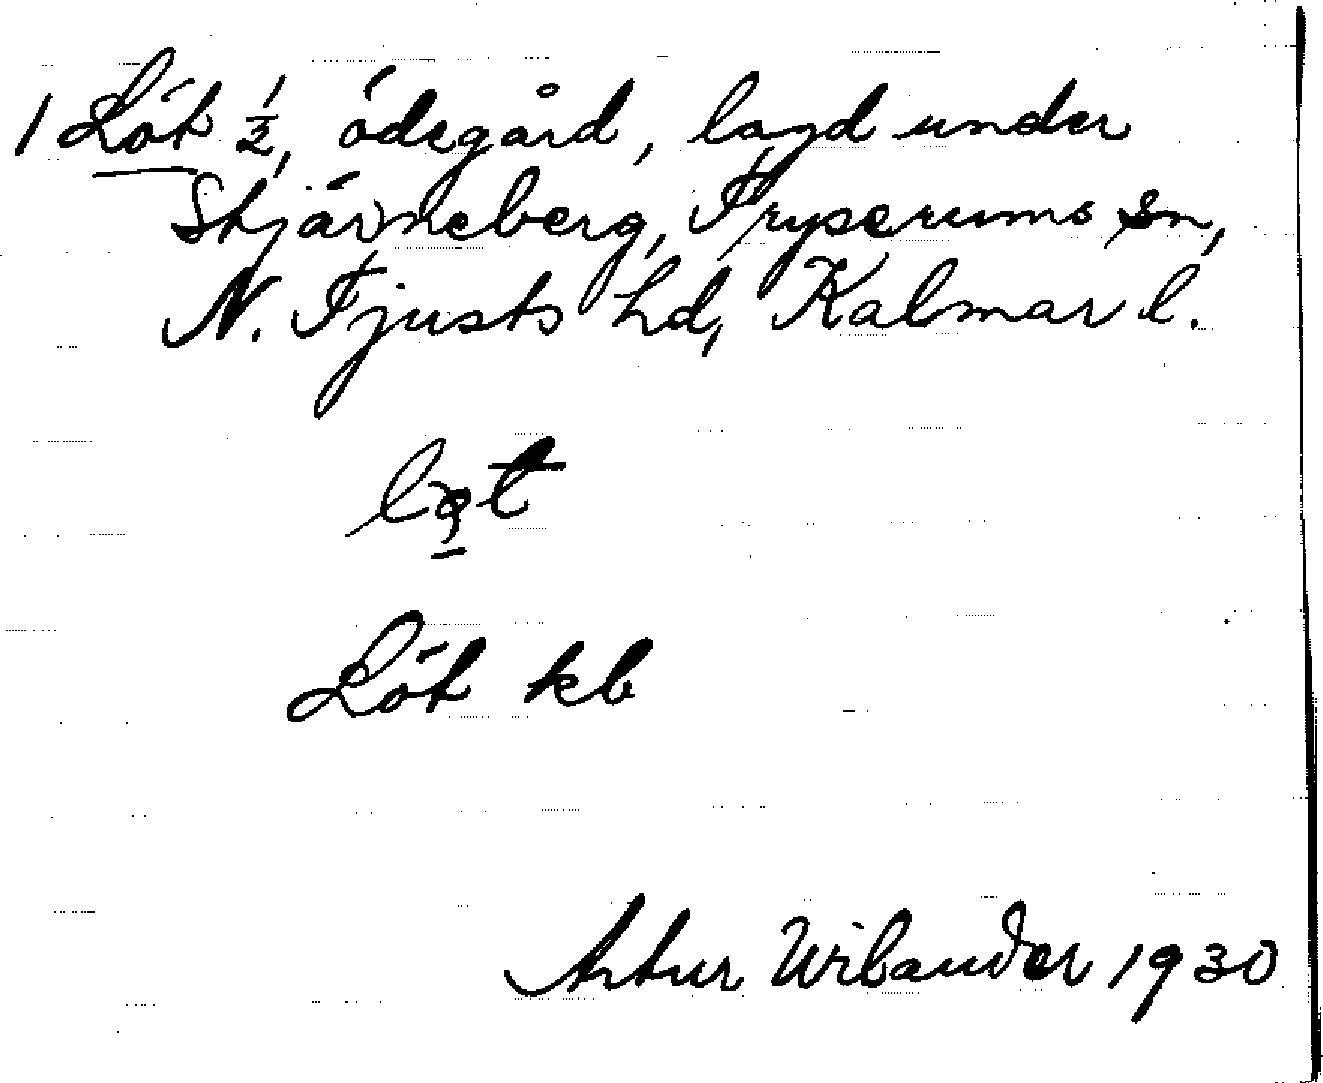 1 Löt ½, ödegård, lagd under
Stjärneberg, Tryserums sn,
N. Tjusts hd, Kalmar l.
Löt kb
Artur Wilander 1930